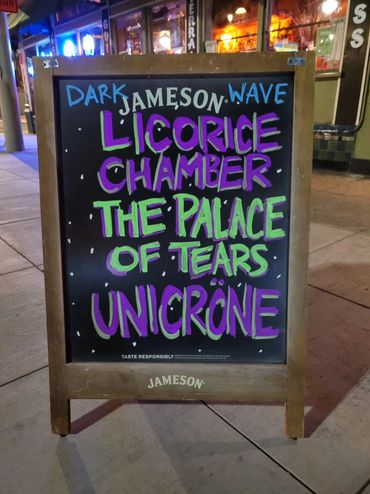 DARK WAVE
JAMESON
LICORICE
CHAMBER
THE PALACE
OF TEARS
UNICRÖNE
TASTE RESPONSIBLY
JAMESON
S
S